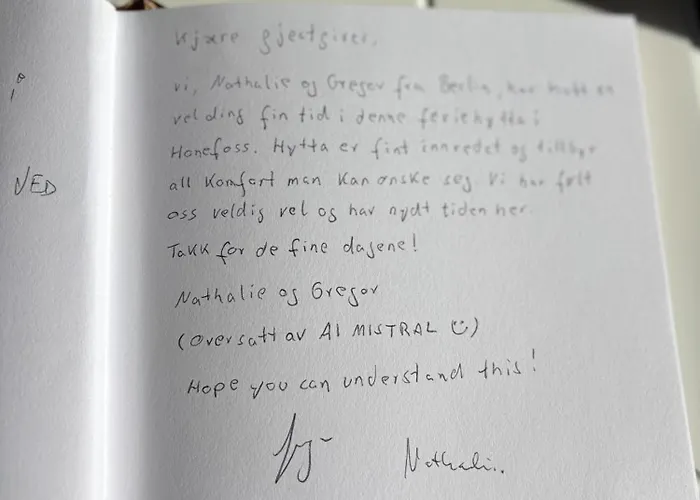 Kjære gjestgiver,
vi, Nathalie og Gregor fra Berlin, har hatt en
velding fin tid i denne feriehytta i
Hønefoss. Hytta er fint innredet og tilbyr
all komfort man kan ønske seg. Vi har følt
oss veldig vel og har nydt tiden her.
Takk for de fine dagene!
Nathalie og Gregor
(Oversatt av AI MISTRAL ☺)
Hope you can understand this!
Nathalie
VED